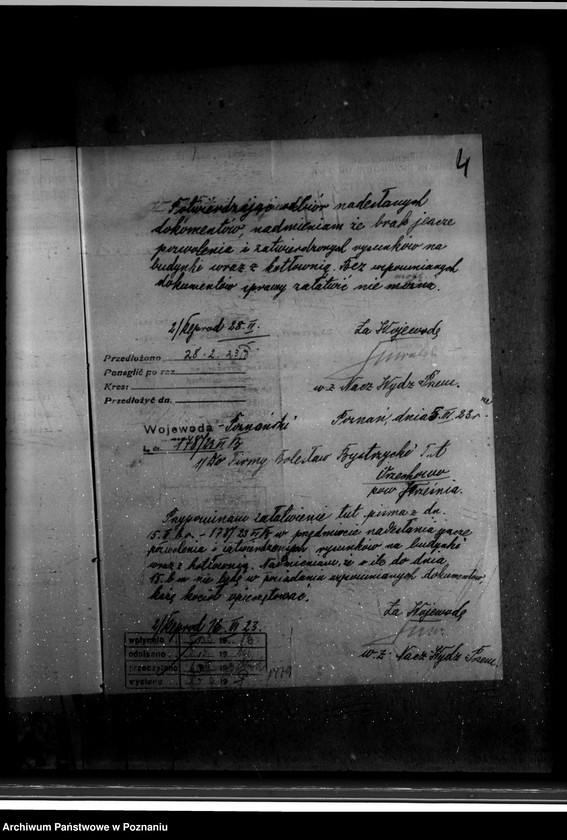 4
Potwierdzając odbiór nadesłanych
dokumentów, nadmieniam że brak jeszcze
pozwolenia i zatwierdzonych rysunków na
budynki wraz z kotłownią. Bez wspomnianych
dokumentów sprawy załatwić nie można.
2/Reprod 28. II.
Za Wojewodę
Przedłożono 28. 2. 23
Ponaglić po raz
Kres:
Przedłożyć dn.
w.z. Nacz Wydz Przem.
Poznań, dnia 5. III. 23 r.
Wojewoda - Poznański
L. dz. 178/23 II B
1/ Do Firmy Bolesław Bystrzycki T. A
Orzechowo
pow. Września.
Przypominam załatwienie tut. pisma z dn.
15. II b.r. - 178/23 II B w przedmiocie nadesłania jeszcze
pozwolenia i zatwierdzonych rysunków na budynki
wraz z kotłownią. Nadmieniam, że o ile do dnia
15. b. m nie będę w posiadaniu wspomnianych dokumentów,
każę kocioł opieczętować.
2/Reprod 16. III 23.
Za Wojewodę
wpłynęło
odpisano
przeczytano
wysłano
w.z. Nacz Wydz Przem.
Archiwum Państwowe w Poznaniu